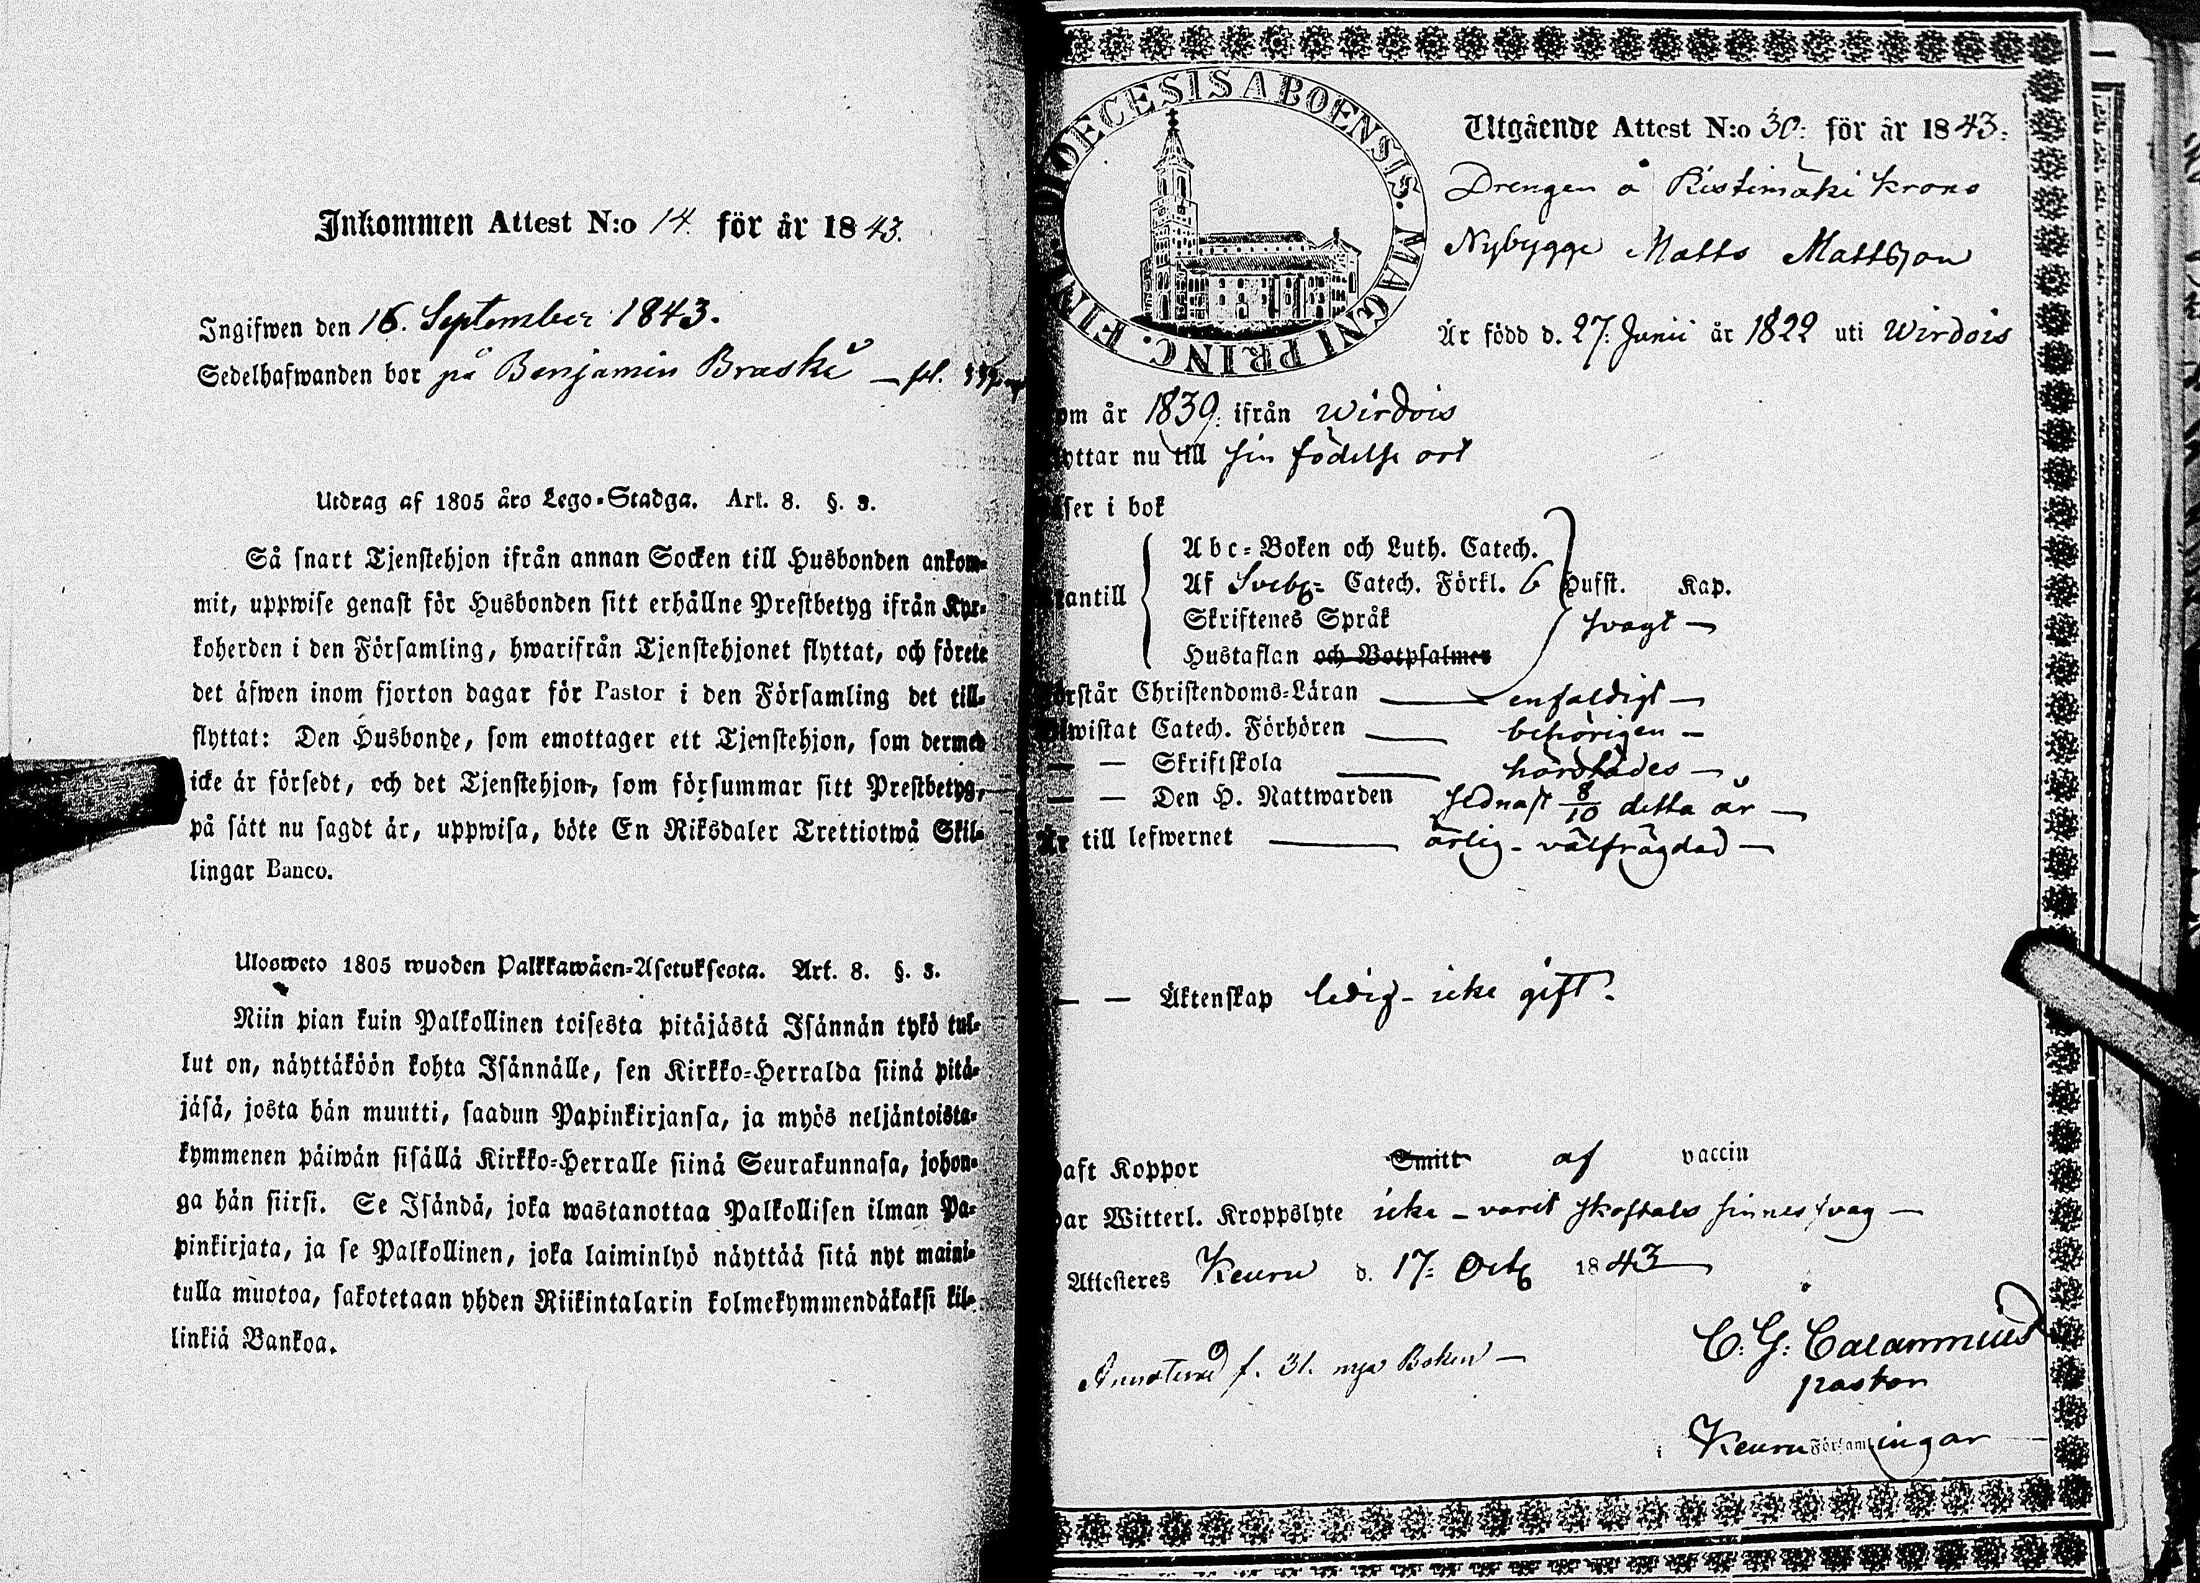 Inkommen Attest N:o 14. för år 1843.
Ingifwen den 16. September 1843.
Sedelhafwanden bor på Benjamin Braski – fol.
Utdrag af 1805 års Lego-Stadga. Art. 8. §. 3.
Så snart Tjenstehjon ifrån annan Socken till Husbonden ankom-
mit, uppwise genast för Husbonden sitt erhållne Prestbetyg ifrån Kyr-
koherden i den Församling, hwarifrån Tjenstehjonet flyttat, och förete
det äfwen inom fjorton dagar för Pastor i den Församling det till-
flyttat: Den Husbonde, som emottager ett Tjenstehjon, som dermed
icke är försedt, och det Tjenstehjon, som försummar sitt Prestbetyg,
på sätt nu sagdt är, uppwisa, böte En Riksdaler Trettiotwå Skil-
lingar Banco.
Ulosweto 1805 wuoden Palkkawäen-Asetuksesta. Art. 8. §. 3.
Niin pian kuin Palkollinen toisesta pitäjästä Isännän tykö tul-
lut on, näyttäköön kohta Isännälle, sen Kirkko-Herralda siinä pitä-
jäsä, josta hän muutti, saadun Papinkirjansa, ja myös neljäntoista-
kymmenen päiwän sisällä Kirkko-Herralle siinä Seurakunnasa, johon-
ga hän siirsi. Se Isändä, joka wastanottaa Palkollisen ilman Pa-
pinkirjata, ja se Palkollinen, joka laiminlyö näyttää sitä nyt maini-
tulla muotoa, sakotetaan yhden Riikintalarin kolmekymmendäkaksi kil-
linkiä Bankoa.
DIOECESIS ABOENSIS. MAGNI PRINC. FINL.
Utgående Attest N:o 30: för år 1843:
Drengen å Ristimäki krono
Nybygge Matts Mattsson
Är född d. 27: Junii år 1822 uti Wirdois
om år 1839: ifrån Wirdois
yttar nu till sin födelse ort
äser i bok
Abc-Boken och Luth. Catech.
Af Sveb: Catech. Förkl. 6 Hufst. Kap.
utantill
Skriftenes Språk
svagt –
Hustaflan och Botpsalmer
örstår Christendoms-Läran — enfaldigt –
wistat Catech. Förhören — behörigen –
— — Skriftskola — härstädes –
— — Den H. Nattwarden sednast 8/10 detta år –
Är till lefwernet — ärlig – välfrägdad –
— — Äktenskap ledig – icke gift.
aft Koppor Smitt af vaccin
ar Witterl. Kroppslyte icke – varit skoftals sinnes svag –
Attesteres Keuru d. 17: Octb 1843
C. G. Calamnius
pastor
Annoterad f. 31. nya Boken –
i Keuru Församlingar